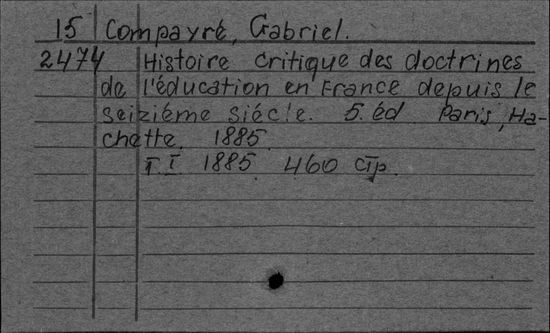 15 Compayré, Gabriel.
2474 Histoire critique des doctrines
de l'éducation en France depuis le
seiziéme siécle. 5. éd Paris, Ha-
chette, 1885.
T. I 1885. 460 стр.